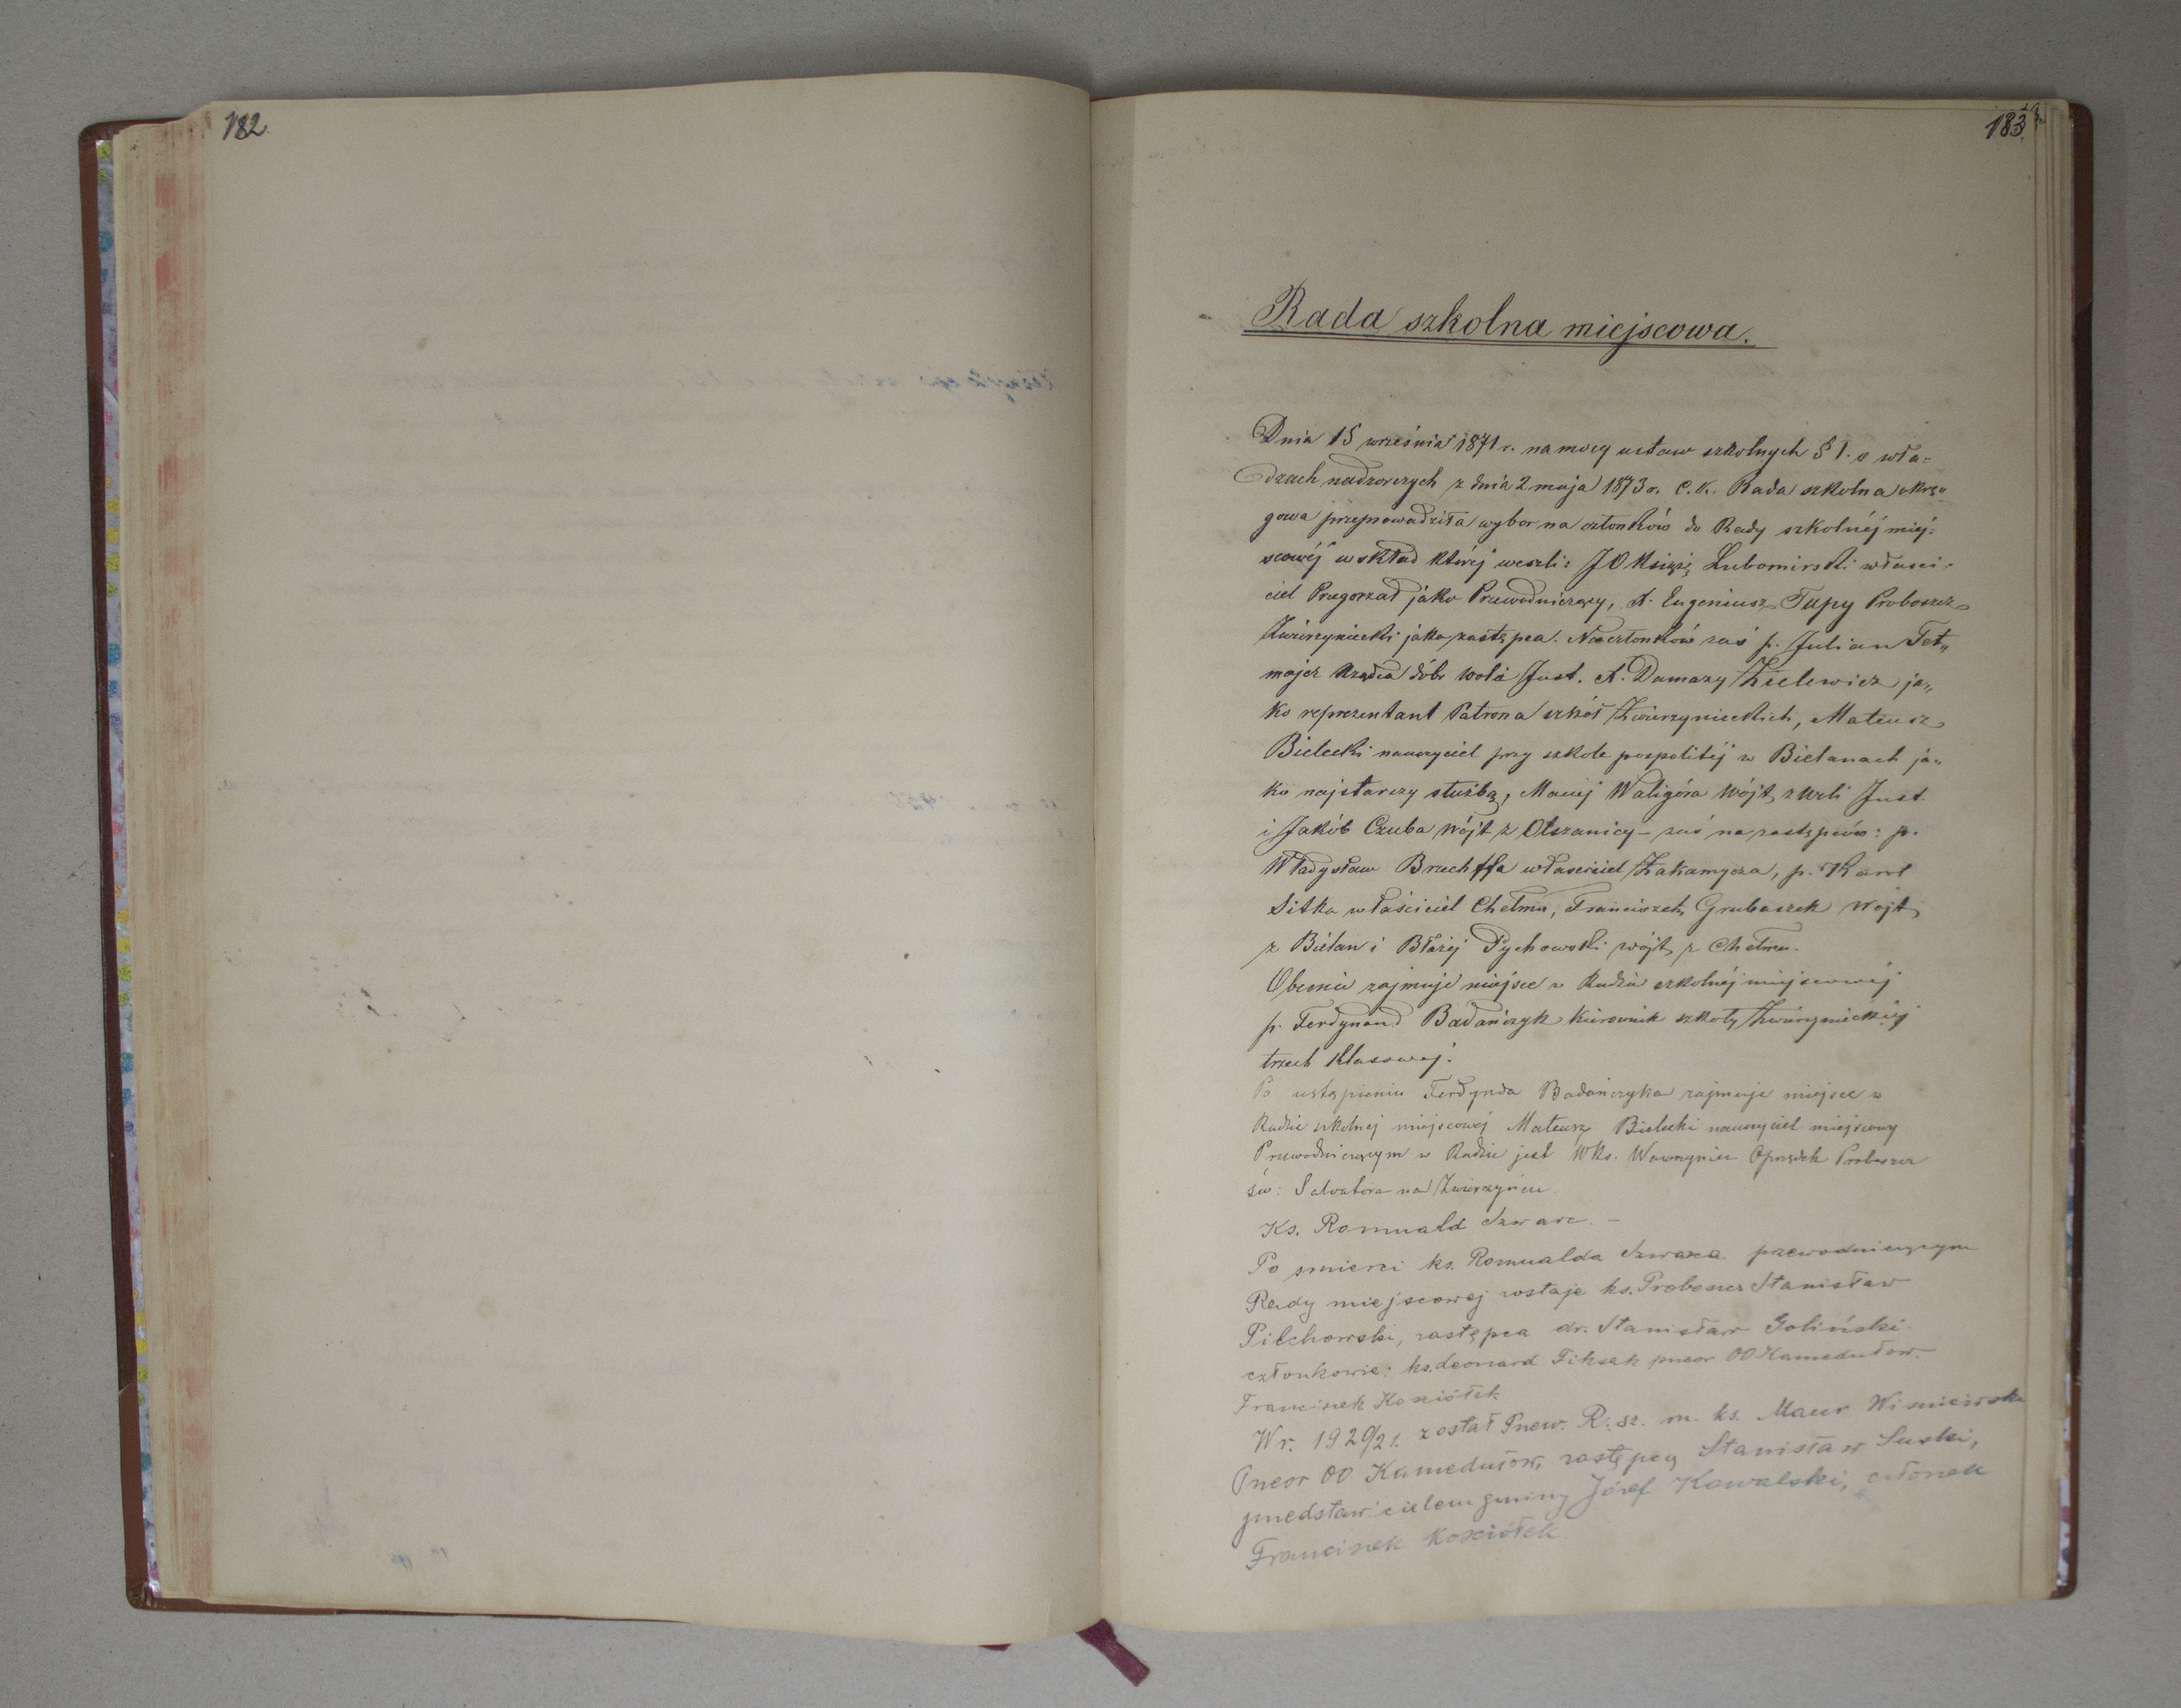 182
183
Rada szkolna miejscowa.
Dnia 15 września 1871 r. na mocy ustaw szkolnych § 1. o wła=
dzach nadzorczych z dnia 2 maja 1873 r. C. K. Rada szkolna okrę=
gowa przeprowadziła wybor na członków do Rady szkolnéj miéj=
scowéj w skład któréj weszli: JO Książę Lubomirski właści=
ciel Przegorzał jako Przewodniczący, X. Eugeniusz Tupy Proboszcz
Zwierzyniecki jako zastępca. Na członków zaś p. Julian Tet„
majer Rządca dóbr Woli Just. X. Damazy Zielewicz ja„
ko reprezentant Patrona szkół Zwierzynieckich, Mateusz
Bielecki nauczyciel przy szkole pospolitéj w Bielanach ja„
ko najstarszy służbą, Maciej Waligóra Wójt z Woli Just.
i Jakób Czuba Wójt z Olszanicy – zaś na zastępców: p.
Władysław Bruchffa właściciel Zakamycza, p. Karol
Sitka właściciel Chełmu, Franciszek Grubaszek Wójt
z Bielan i Błażej Pychowski wójt z Chełmu.
Obecnie zajmuje miéjsce w Radzie szkolnéj miejscowéj
p. Ferdynand Badańczyk kierownik szkoły Zwierzynieckiéj
trzech klasowej.
Po ustąpieniu Ferdynda Badańczyka zajmuje miejsce w
Radzie szkolnej miejscowéj Mateusz Bielecki nauczyciel miéjscowy
Przewodniczącym w Radzie jest WKs. Wawrzyniec Oprządek Proboszcz
św: Salvatora na Zwierzyńcu
Ks. Romuald Szwarc. –
Po smierci ks. Romualda Szwarca przewodniczącym
Rady miejscowej zostaje ks. Proboszcz Stanisław
Pilchowski, zastępca dr. Stanisław Goliński
członkowie: ks. Leonard Fiksek przeor OO Kamedułow.
Franciszek Kościółek
W r. 1920/21. został Przew. R. sz. m. ks. Maur Wiśniewski
Przeor OO Kamedułow, zastępcą Stanisław Suski,
przedstawicielem gminy Józef Kowalski, członek
Franciszek Kościółek